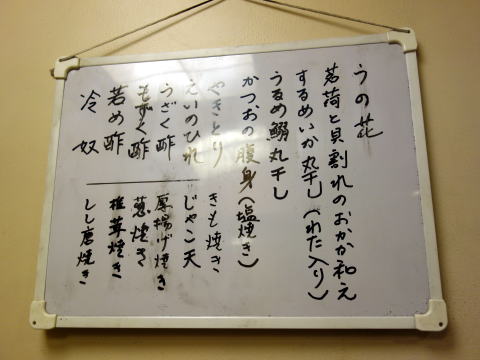 うの花
茗荷と貝割れのおかか和え
するめいか丸干し(わた入り)
うるめ鰯丸干し
かつおの腹身(塩焼き)
やきとり
えいのひれ
うざく酢
もずく酢
若め酢
冷奴
きも焼き
じゃこ天
厚揚げ焼き
葱焼き
椎茸焼き
しし唐焼き